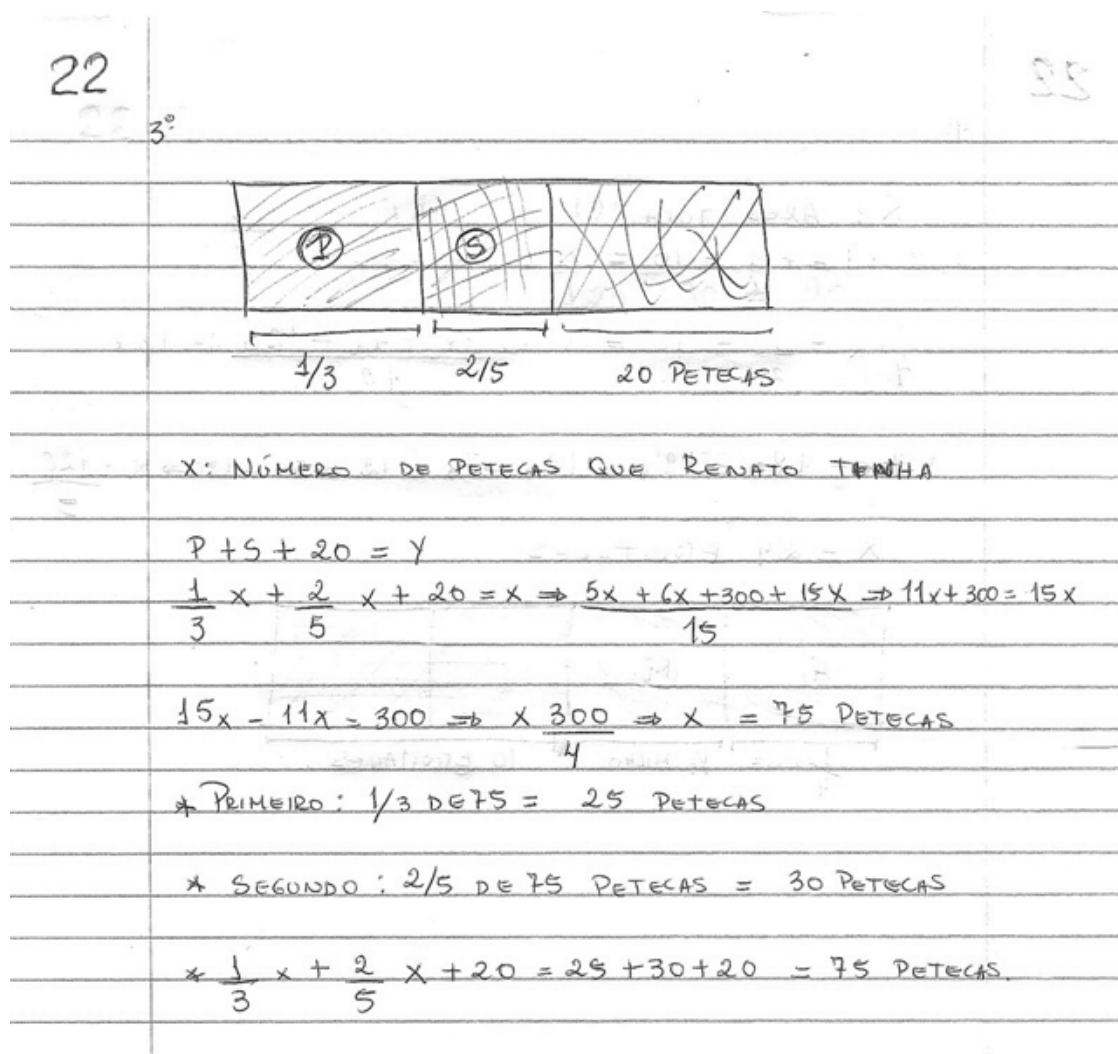 22
3º
P S
1/3 2/5 20 PETECAS
X: NÚMERO DE PETECAS QUE RENATO TENHA
P + S + 20 = Y
1/3 x + 2/5 x + 20 = x ⇒ 5x + 6x + 300 + 15x / 15 ⇒ 11x + 300 = 15x
15x - 11x = 300 ⇒ x 300/4 ⇒ x = 75 PETECAS
* PRIMEIRO: 1/3 DE 75 = 25 PETECAS
* SEGUNDO: 2/5 DE 75 PETECAS = 30 PETECAS
* 1/3 x + 2/5 x + 20 = 25 + 30 + 20 = 75 PETECAS.